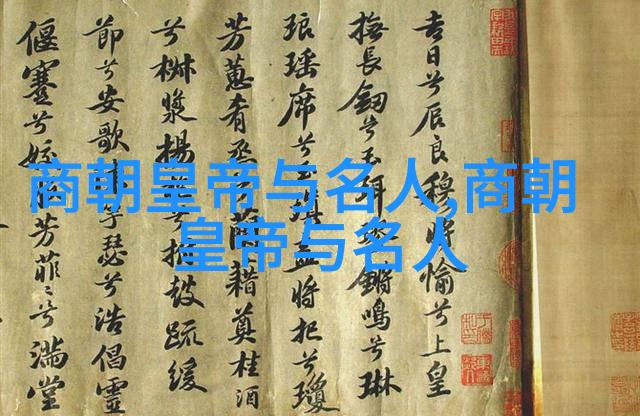 商朝皇帝与名人,商朝
皇帝与名人
吉日兮辰良穆將愉兮上皇
撫長劒兮玉珥璆鏘鳴兮琳
琅瑶席兮玉瑱盍將把兮瓊
芳蕙肴烝蘭藉奠桂酒
兮椒漿揚兮拊鼓疏緩
節兮安歌竽瑟兮浩倡靈
偃蹇兮姣芳菲〻兮滿堂